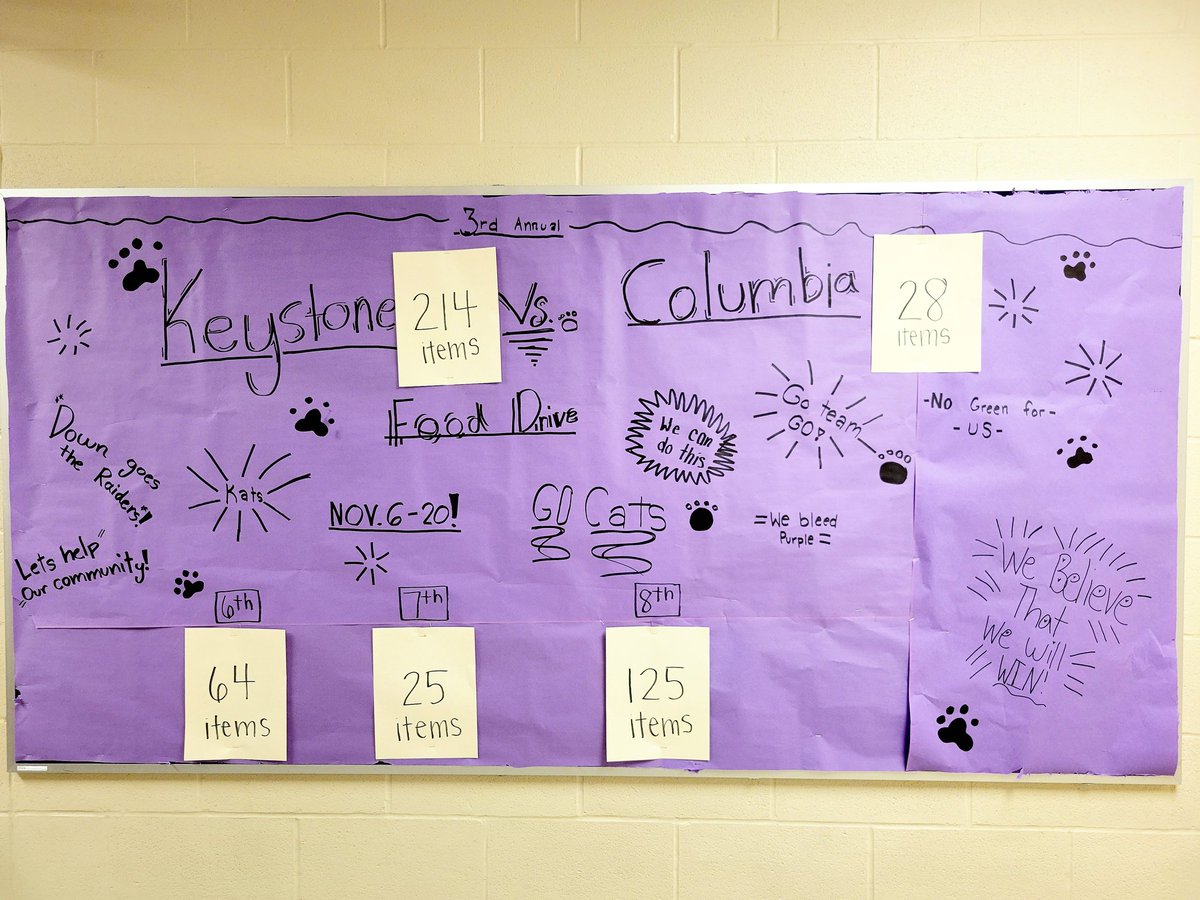 3rd Annual
Keystone
214
items
Vs.
Columbia
28
items
Food Drive
NOV. 6-20!
"Down goes
the Raiders!"
Kats
"Let's help"
"our community!
GO Cats
We can
do this
Go team
GO!
=We bleed
Purple =
-No Green for-
-US-
We Believe
That
We will
WIN!
6th
7th
8th
64
items
25
items
125
items